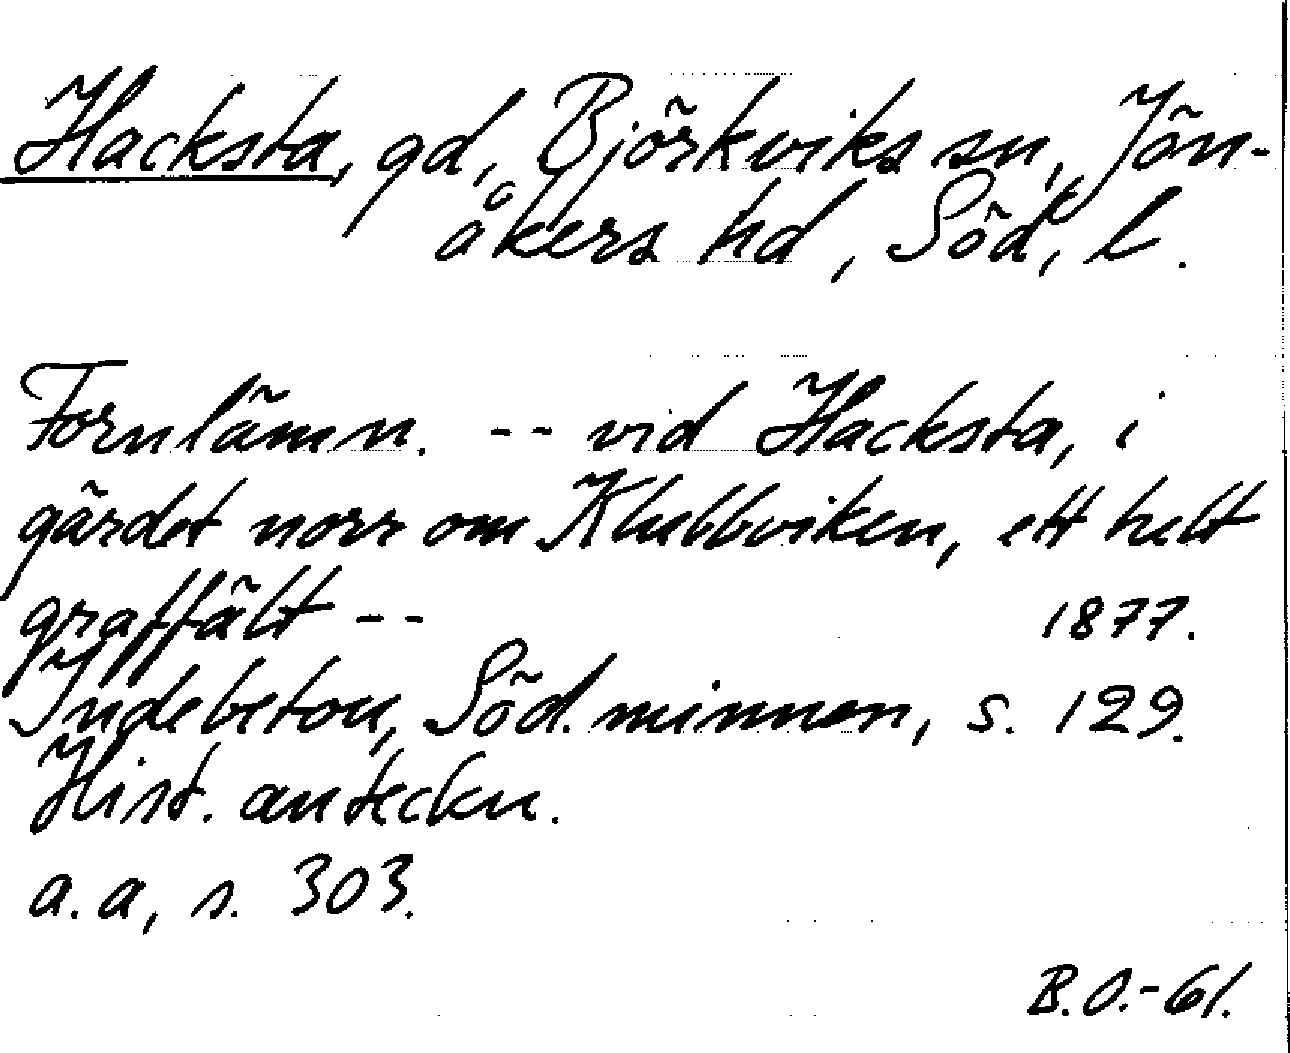 Hacksta, gd, Björkviks sn, Jön-
åkers hd, Söd, l.
Fornlämn. -- vid Hacksta, i
gärdet norr om Klubbviken, ett helt
graffält --
1877.
Indebetou, Söd. minnen, s. 129.
Hist. anteckn.
a.a, s. 303.
B.O.-61.